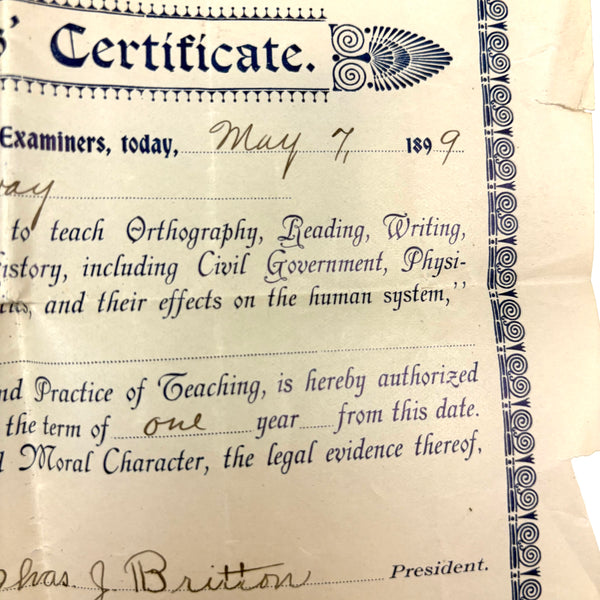 Certificate.
Examiners, today, May 7, 1899
to teach Orthography, Reading, Writing,
History, including Civil Government, Physi-
and their effects on the human system,"
and Practice of Teaching, is hereby authorized
the term of one year from this date.
Moral Character, the legal evidence thereof,
Chas. J Britton President.